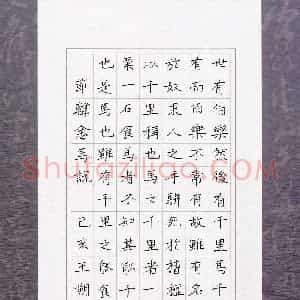 世有伯樂然後有千里馬千
有而伯樂不常有故雖有名
於奴隶人之手駢死於槽
以千里稱也馬之千里者一
粟一石食馬者不知其能千
也是馬也雖有千
節韓愈馬說 己亥王朔
Shufaziliao.COM